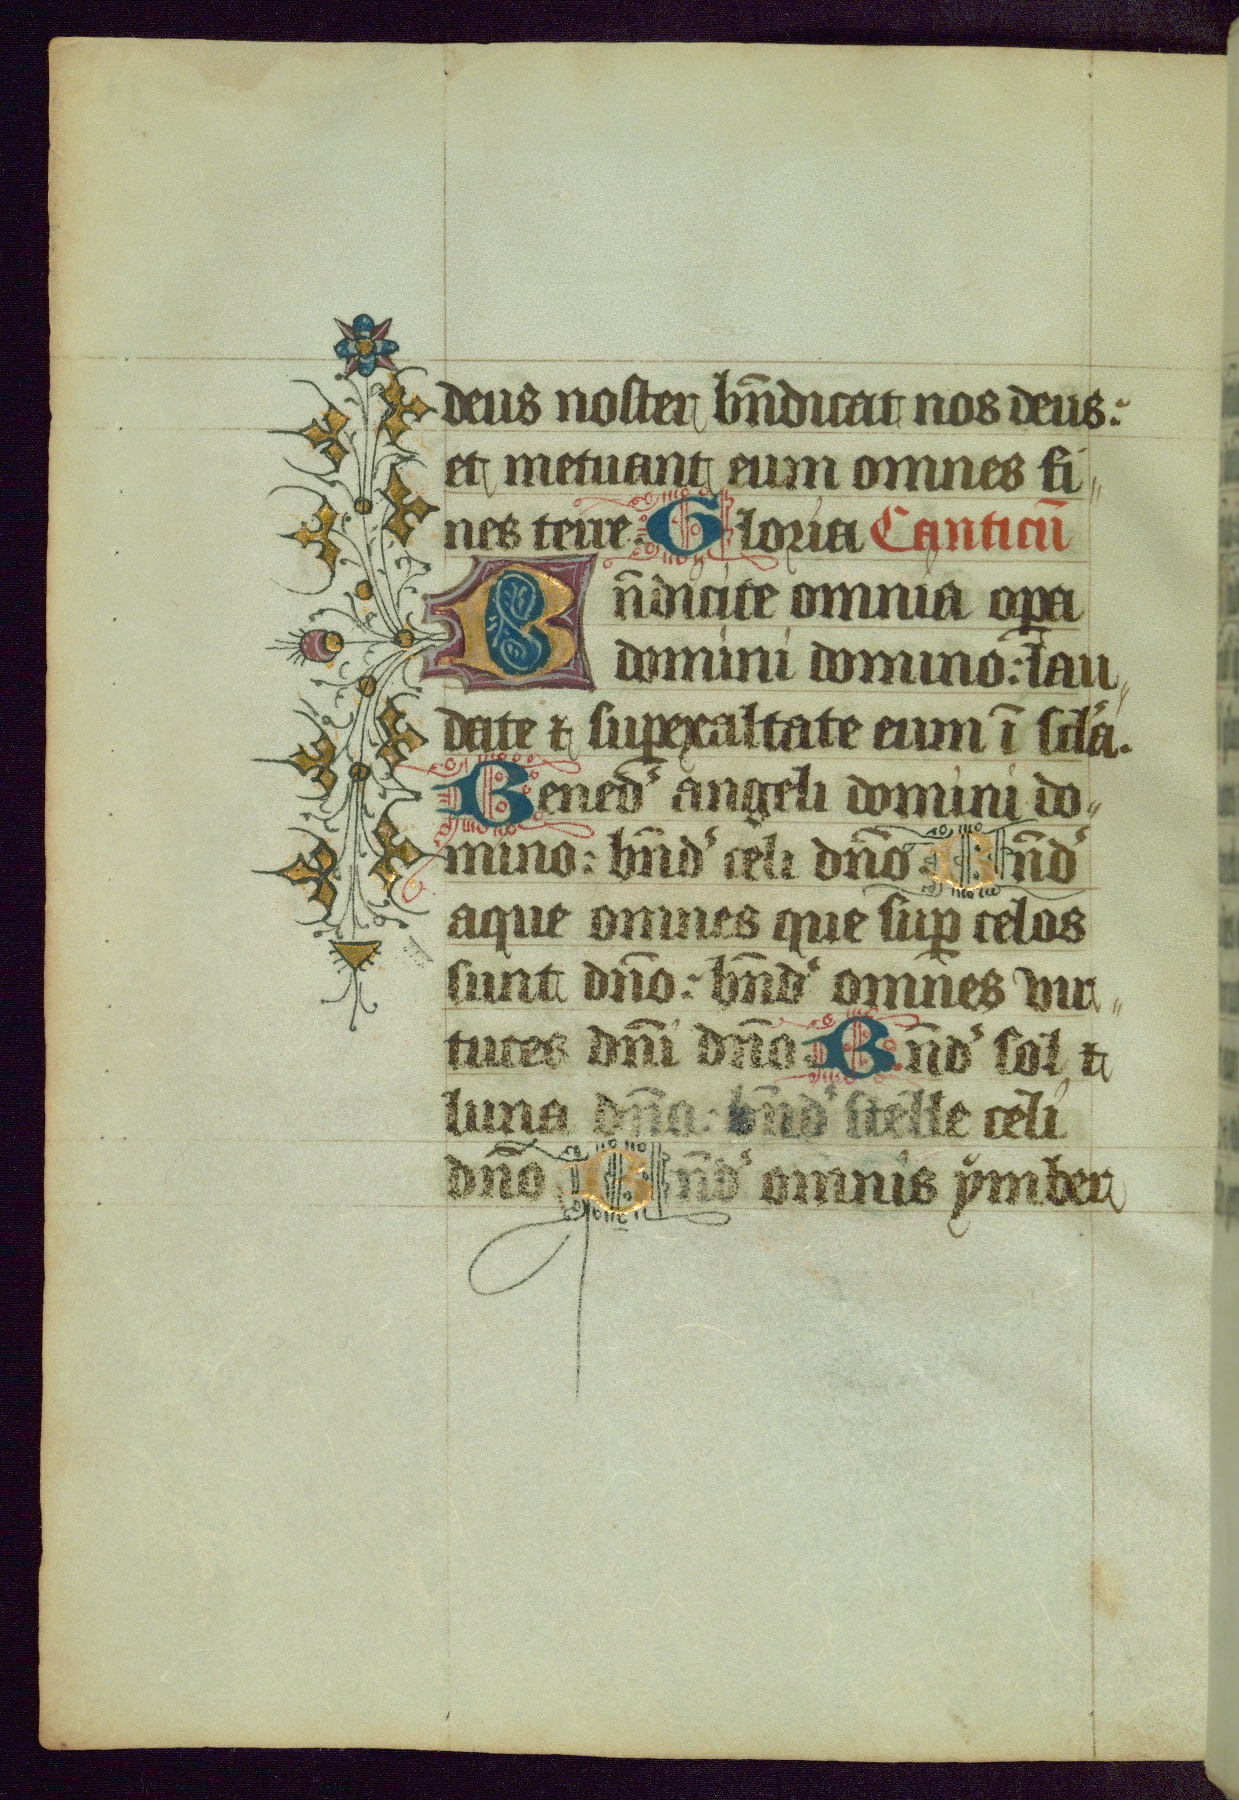 deus noster bn̄dicat nos deus:
et metuant eum omnes fi„
nes terre. Gloria Canticū
Bn̄dicite omnia oꝑa
domini domino: lau„
date ⁊ suꝑexaltate eum ī scl̄a.
Bened’ angeli domini do„
mino: bn̄d’ celi dn̄o. Bn̄d’
aque omnes que suꝑ celos
sunt dn̄o: bn̄d’ omnes vir„
tutes dn̄i dn̄o. Bn̄d’ sol ⁊
luna dn̄o: bn̄d’ stelle celi
dn̄o Bn̄d’ omnis ymber